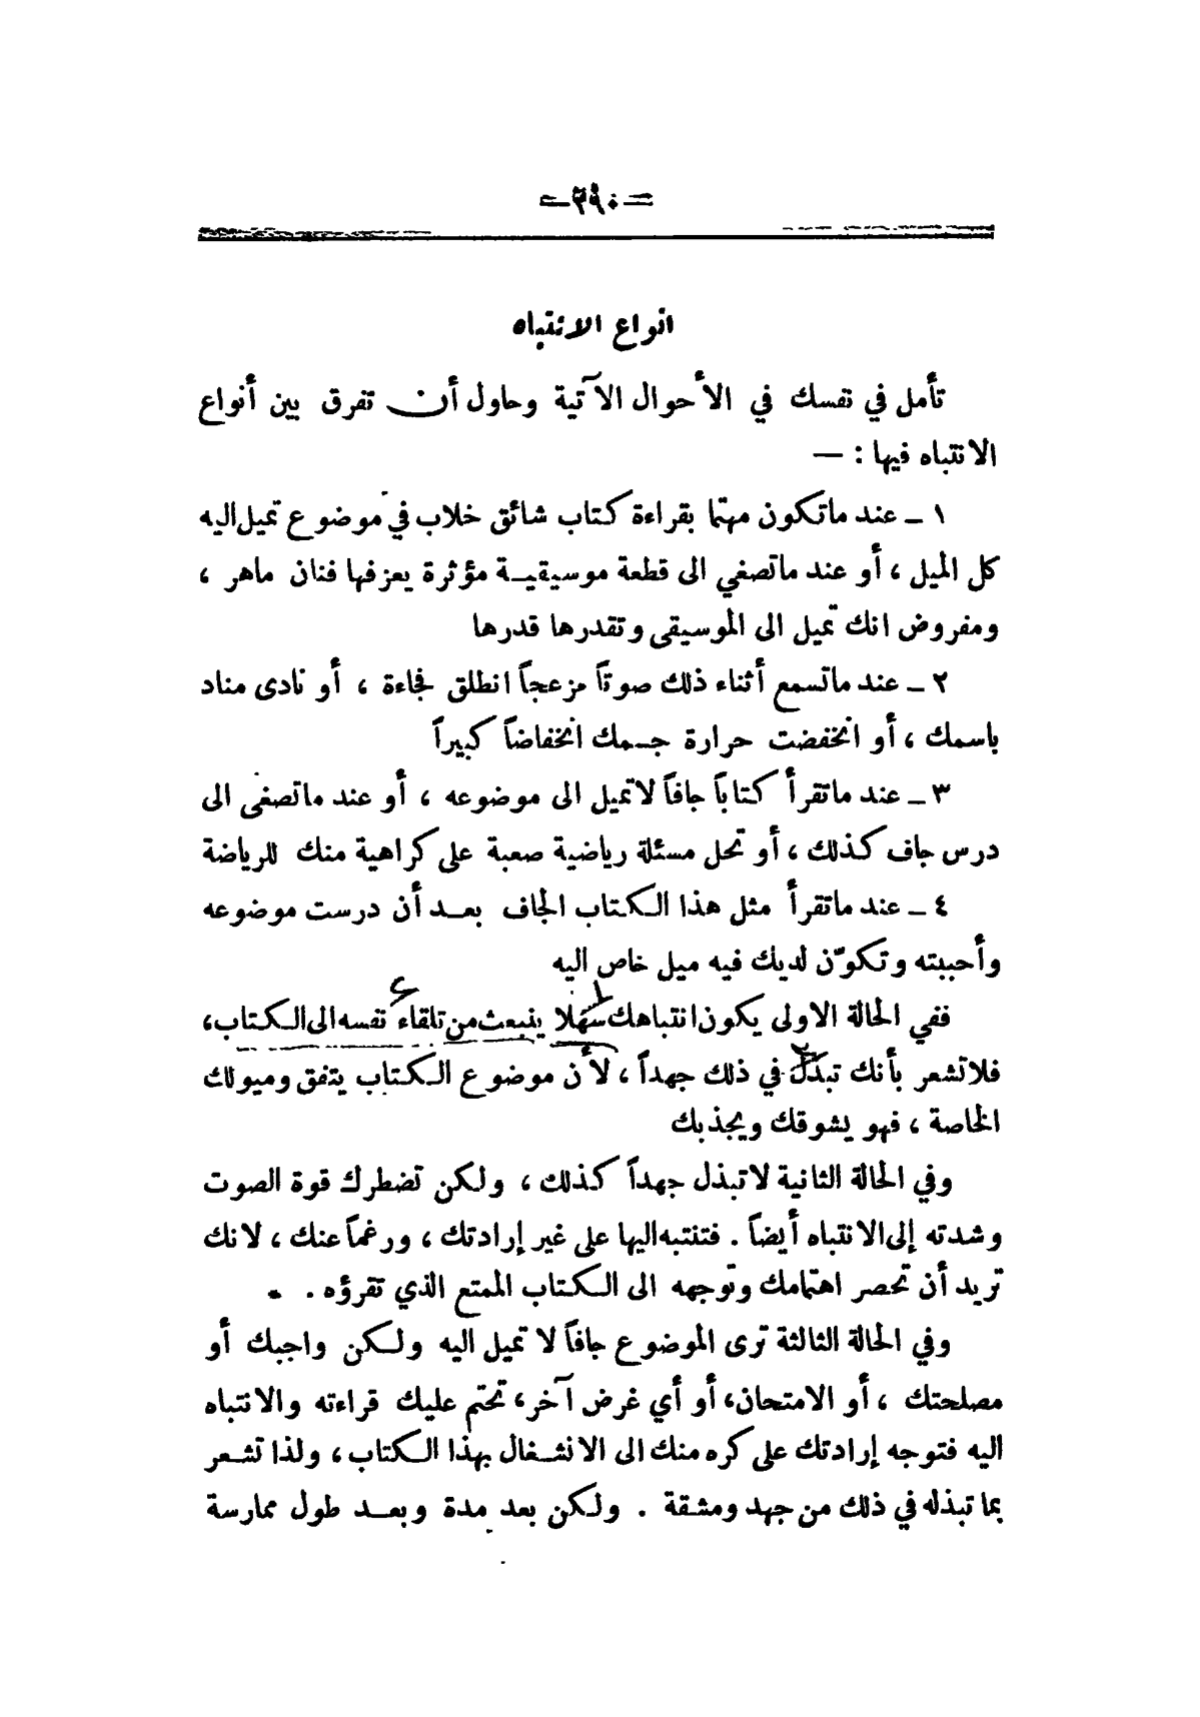 =٢٩٠=
انواع الانتباه
تأمل في نفسك في الأحوال الآتية وحاول أن تفرق بين أنواع
الانتباه فيها : —
١ ــ عند ماتكون مهتما بقراءة كتاب شائق خلاب في موضوع تميل اليه
كل الميل ، أو عند ماتصغي الى قطعة موسيقيـة مؤثرة يعزفها فنان ماهر ،
ومفروض انك تميل الى الموسيقى وتقدرها قدرها
٢ ــ عند ماتسمع أثناء ذلك صوتاً مزعجاً انطلق فجاءة ، أو نادى مناد
باسمك ، أو انخفضت حرارة جسمك انخفاضاً كبيراً
٣ ــ عند ماتقرأ كتاباً جافاً لاتميل الى موضوعه ، أو عند ماتصغى الى
درس جاف كذلك ، أو تحل مسئلة رياضية صعبة على كراهية منك للرياضة
٤ ــ عند ماتقرأ مثل هذا الكتاب الجاف بعد أن درست موضوعه
وأحببته وتكوّن لديك فيه ميل خاص اليه
ففي الحالة الاولى يكون انتباهك سهلا ينبعث من تلقاء نفسه الى الكتاب،
فلاتشعر بأنك تبذل في ذلك جهداً ، لأن موضوع الكتاب يتفق وميولك
الخاصة ، فهو يشوقك ويجذبك
وفي الحالة الثانية لاتبذل جهداً كذلك ، ولكن تضطرك قوة الصوت
وشدته إلى الانتباه أيضاً . فتنتبه اليها على غير إرادتك ، ورغماً عنك ، لانك
تريد أن تحصر اهتمامك وتوجهه الى الكتاب الممتع الذي تقرؤه .
وفي الحالة الثالثة ترى الموضوع جافاً لا تميل اليه ولكن واجبك أو
مصلحتك ، أو الامتحان، أو أي غرض آخر، تحتم عليك قراءته والانتباه
اليه فتوجه إرادتك على كره منك الى الانشغال بهذا الكتاب ، ولذا تشعر
بما تبذله في ذلك من جهد ومشقة . ولكن بعد مدة وبعد طول ممارسة